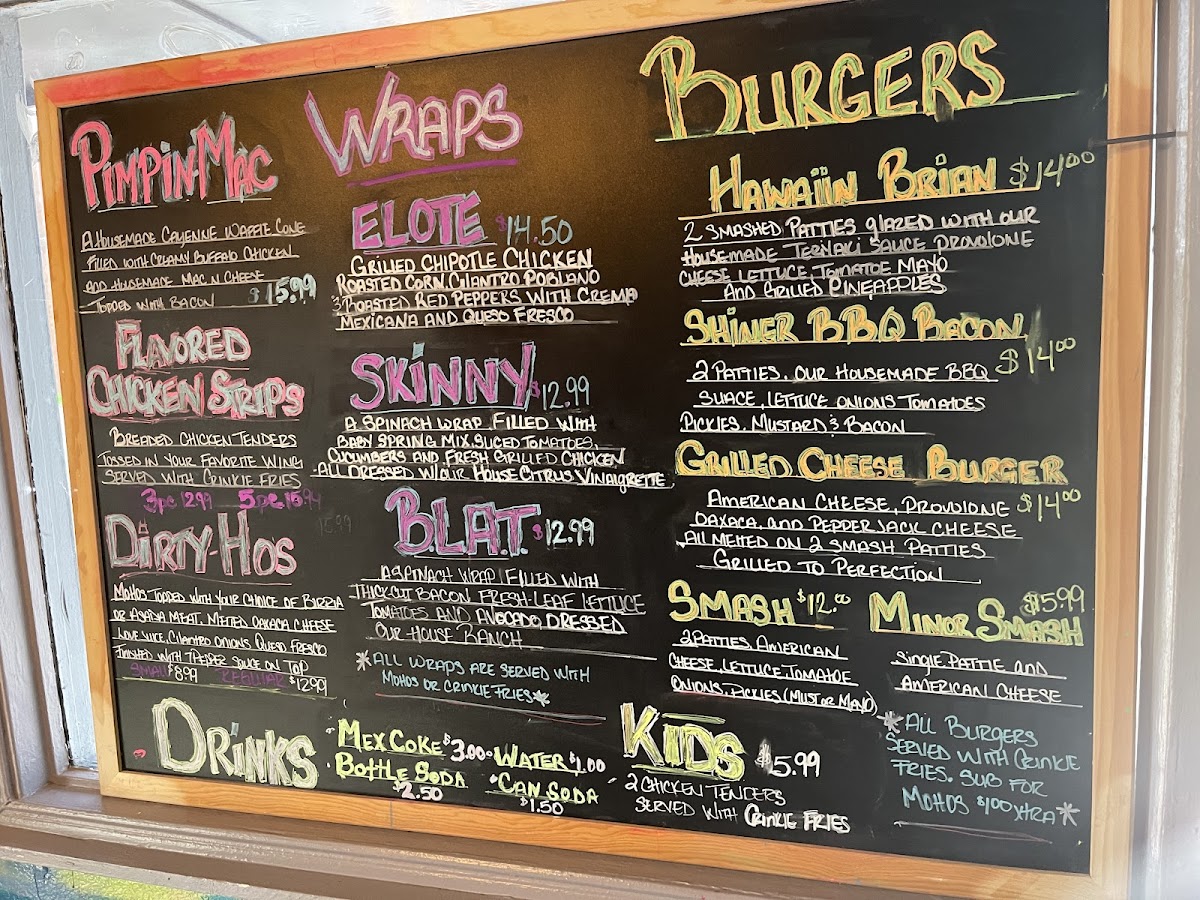 PIMPIN MAC
A HOUSEMADE CAYENNE WAFFLE CONE
FILLED WITH CREAMY BUFFALO CHICKEN
AND HOUSEMADE MAC N CHEESE
TOPPED WITH BACON $15.99
FLAVORED
CHICKEN STRIPS
BREADED CHICKEN TENDERS
TOSSED IN YOUR FAVORITE WING
SERVED WITH CRINKIE FRIES
3pc 12.99 5pc
15.99
DIRTY-HOS
MOHOS TOPPED WITH YOUR CHOICE OF BIRRIA
OR ASADA MEAT, MELTED OAXACA CHEESE
LOVE JUICE, CILANTRO ONIONS, QUESO FRESCO
FINISHED WITH SAUCE ON TOP
SMALL $8.99 REGULAR $12.99
WRAPS
ELOTE $14.50
GRILLED CHIPOTLE CHICKEN
ROASTED CORN, CILANTRO POBLANO
& ROASTED RED PEPPERS WITH CREMA
MEXICANA AND QUESO FRESCO
SKINNY $12.99
A SPINACH WRAP FILLED WITH
BABY SPRING MIX, SLICED TOMATOES,
CUCUMBERS AND FRESH GRILLED CHICKEN
ALL DRESSED W/OUR HOUSE CITRUS VINAIGRETTE
B.L.A.T. $12.99
A SPINACH WRAP FILLED WITH
THICK CUT BACON FRESH LEAF LETTUCE
TOMATOES AND AVOCADO, DRESSED
OUR HOUSE RANCH
*ALL WRAPS ARE SERVED WITH
MOHOS OR CRINKIE FRIES*
BURGERS
HAWAIIN BRIAN $14.00
2 SMASHED PATTIES GLAZED WITH OUR
HOUSEMADE TERYAKI SAUCE PROVOLONE
CHEESE LETTUCE, TOMATOE MAYO
AND GRILLED PINEAPPLES
SHINER BBQ BACON
$14.00
2 PATTIES, OUR HOUSEMADE BBQ
SUACE, LETTUCE ONIONS TOMATOES
PICKLES, MUSTARD & BACON
GRILLED CHEESE BURGER
AMERICAN CHEESE, PROVOLONE $14.00
OAXACA, AND PEPPER JACK CHEESE
ALL MELTED ON 2 SMASH PATTIES
GRILLED TO PERFECTION
SMASH $12.00
2 PATTIES AMERICAN
CHEESE, LETTUCE, TOMAHOE
ONIONS, PICKLES (MUST OR MAYO)
MINOR SMASH
$5.99
SINGLE PATTIE AND
AMERICAN CHEESE
*ALL BURGERS
SERVED WITH CRINKIE
FRIES. SUB FOR
MOHOS $1.00 XTRA*
DRINKS
MEX COKE $3.00
BOTTLE SODA
$2.50
WATER $1.00
CAN SODA
$1.50
KIDS $5.99
2 CHICKEN TENDERS
SERVED WITH CRINKIE FRIES